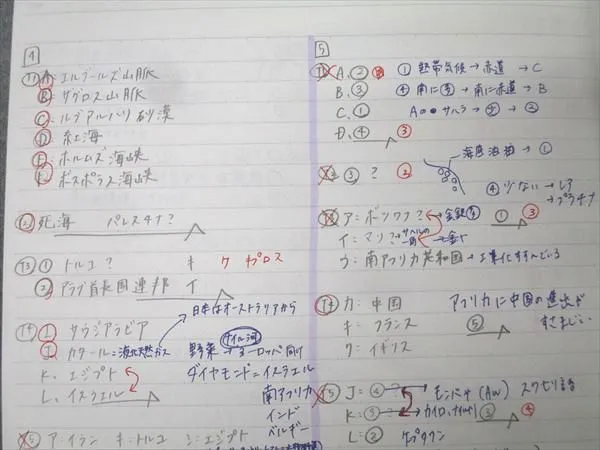 4
問1 A:エルブールズ山脈
B:ザグロス山脈
C:ルブアルハリ砂漠
D:紅海
E:ホルムズ海峡
F:ボスポラス海峡
問2 死海 パレスチナ?
問3 ① トルコ? キ ク キプロス
② アラブ首長国連邦 イ
日本はオーストラリアから
問4 I サウジアラビア
J カタール=液化天然ガス
野菜→ヨーロッパ向け
ナイル河
K、エジプト
ダイヤモンド=イスラエル
L、イスラエル
南アフリカ
インド
ベルギー
問5 ア:イラン キ:トルコ シ:エジプト
5
問1 A、② ① 熱帯気候→赤道→C
B、③ ④ 南に→南に赤道→B
C、① Aのサハラ→②
D、④ ③
問2 ③ ? ② 海底油田→①
④ 少ない→レア
→プラチナ
問3 ア:ボツワナ? 金銀 ① ③
イ:マリ?→サヘルの一角→金
ウ:南アフリカ共和国→工業化すすんでいる
問4 カ:中国 アフリカに中国の進出が
キ:フランス ⑤ すさまじい
ク:イギリス
問5 J=④ モンバサ(AW) スワヒリ語
K=③ カイロ、 ③ ④
L=② ケープタウン